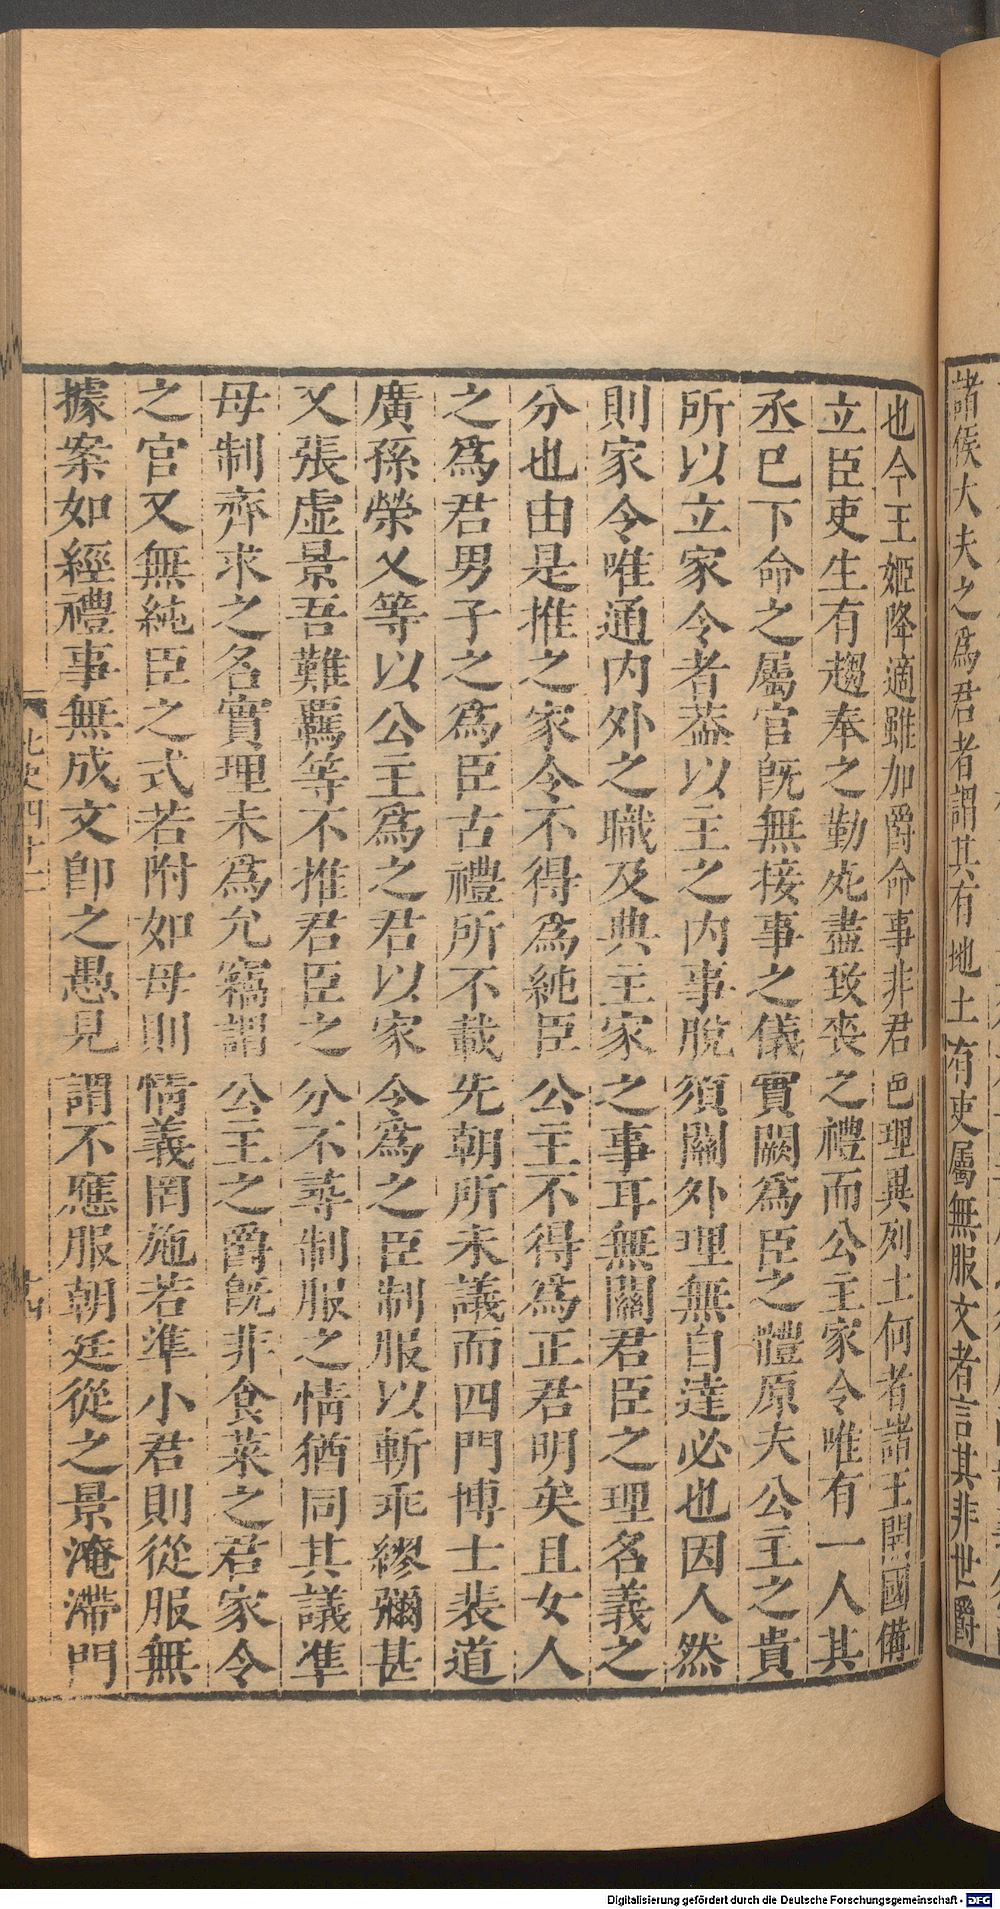 諸侯大夫之為君者謂其有地土有吏屬無服文者言其非世爵
也今王姬降適雖加爵命事非君邑理異列土何者諸王開國備
立臣吏生有趨奉之勤死盡致喪之禮而公主家令唯有一人其
丞已下命之屬官旣無接事之儀實闕為臣之禮原夫公主之貴
所以立家令者葢以主之內事脫須關外理無自達必也因人然
則家令唯通內外之職及典主家之事耳無關君臣之理名義之
分也由是推之家令不得為純臣公主不得為正君明矣且女人
之為君男子之為臣古禮所不載先朝所未議而四門博士裴道
廣孫榮乂等以公主為之君以家令為之臣制服以斬乖繆彌甚
又張虛景吾難羈等不推君臣之分不尋制服之情猶同其議準
母制齊求之名實理未為允竊謂公主之爵旣非食菜之君家令
之官又無純臣之式若附如母則情義罔施若準小君則從服無
據案如經禮事無成文卽之愚見謂不應服朝廷從之景淹滯門
北史四十二
十四
Digitalisierung gefördert durch die Deutsche Forschungsgemeinschaft - DFG